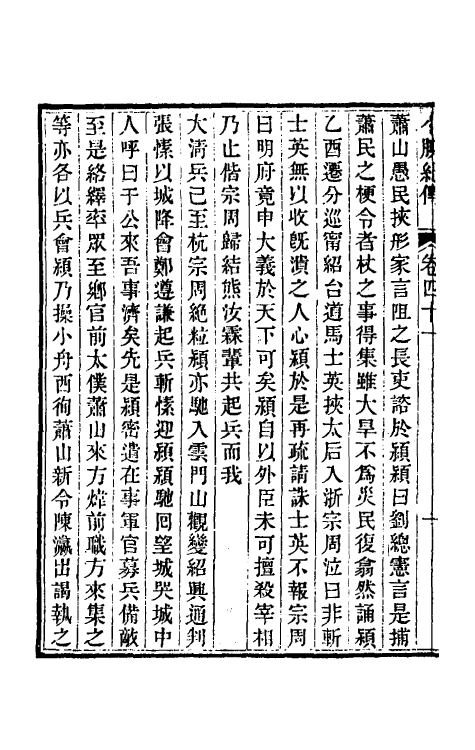 小腆紀傳　卷四十一
蕭山愚民挾形家言阻之長吏諮於潁潁曰劉總憲言是捕
蕭民之梗令者杖之事得集雖大旱不爲災民復翕然誦潁
乙酉遷分巡甯紹台道馬士英挾太后入浙宗周泣曰非斬
士英無以收旣潰之人心潁於是再疏請誅士英不報宗周
曰明府竟申大義於天下可矣潁自以外臣未可擅殺宰相
乃止偕宗周歸結熊汝霖輩共起兵而我
大淸兵已至杭宗周絶粒潁亦馳入雲門山觀變紹興通判
張愫以城降會鄭遵謙起兵斬愫迎潁潁馳回望城哭城中
人呼曰于公來吾事濟矣先是潁密遣在事軍官募兵備敵
至是絡繹率眾至鄉官前太僕蕭山來方煒前職方來集之
等亦各以兵會潁乃操小舟西徇蕭山新令陳瀛出謁執之